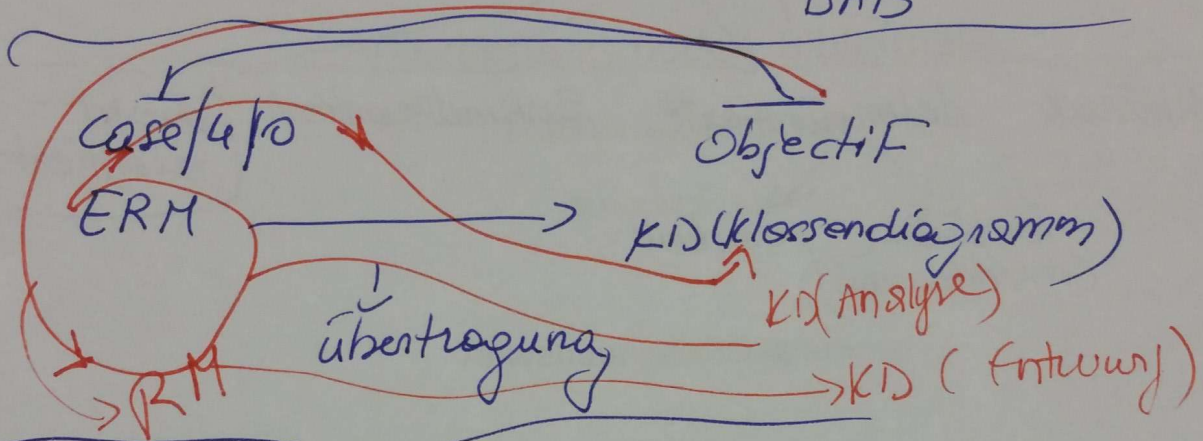 case/4/0 ObjectiF
ERM KD (Klassendiagramm)
KD (Analyse)
übertragung
RM KD (Entwurf)